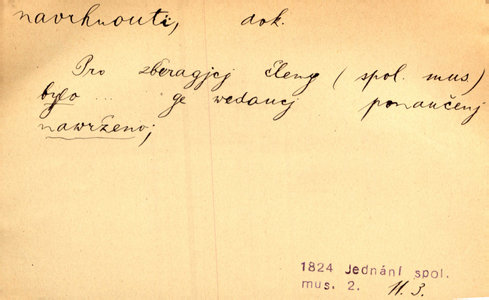 navrhnouti, dok.
Pro zberagjcj členy (spol. mus.)
bylo ... ge wedaucj ponaučenj
nawrženo;
1824 Jednání spol.
mus. 2. 11.3.